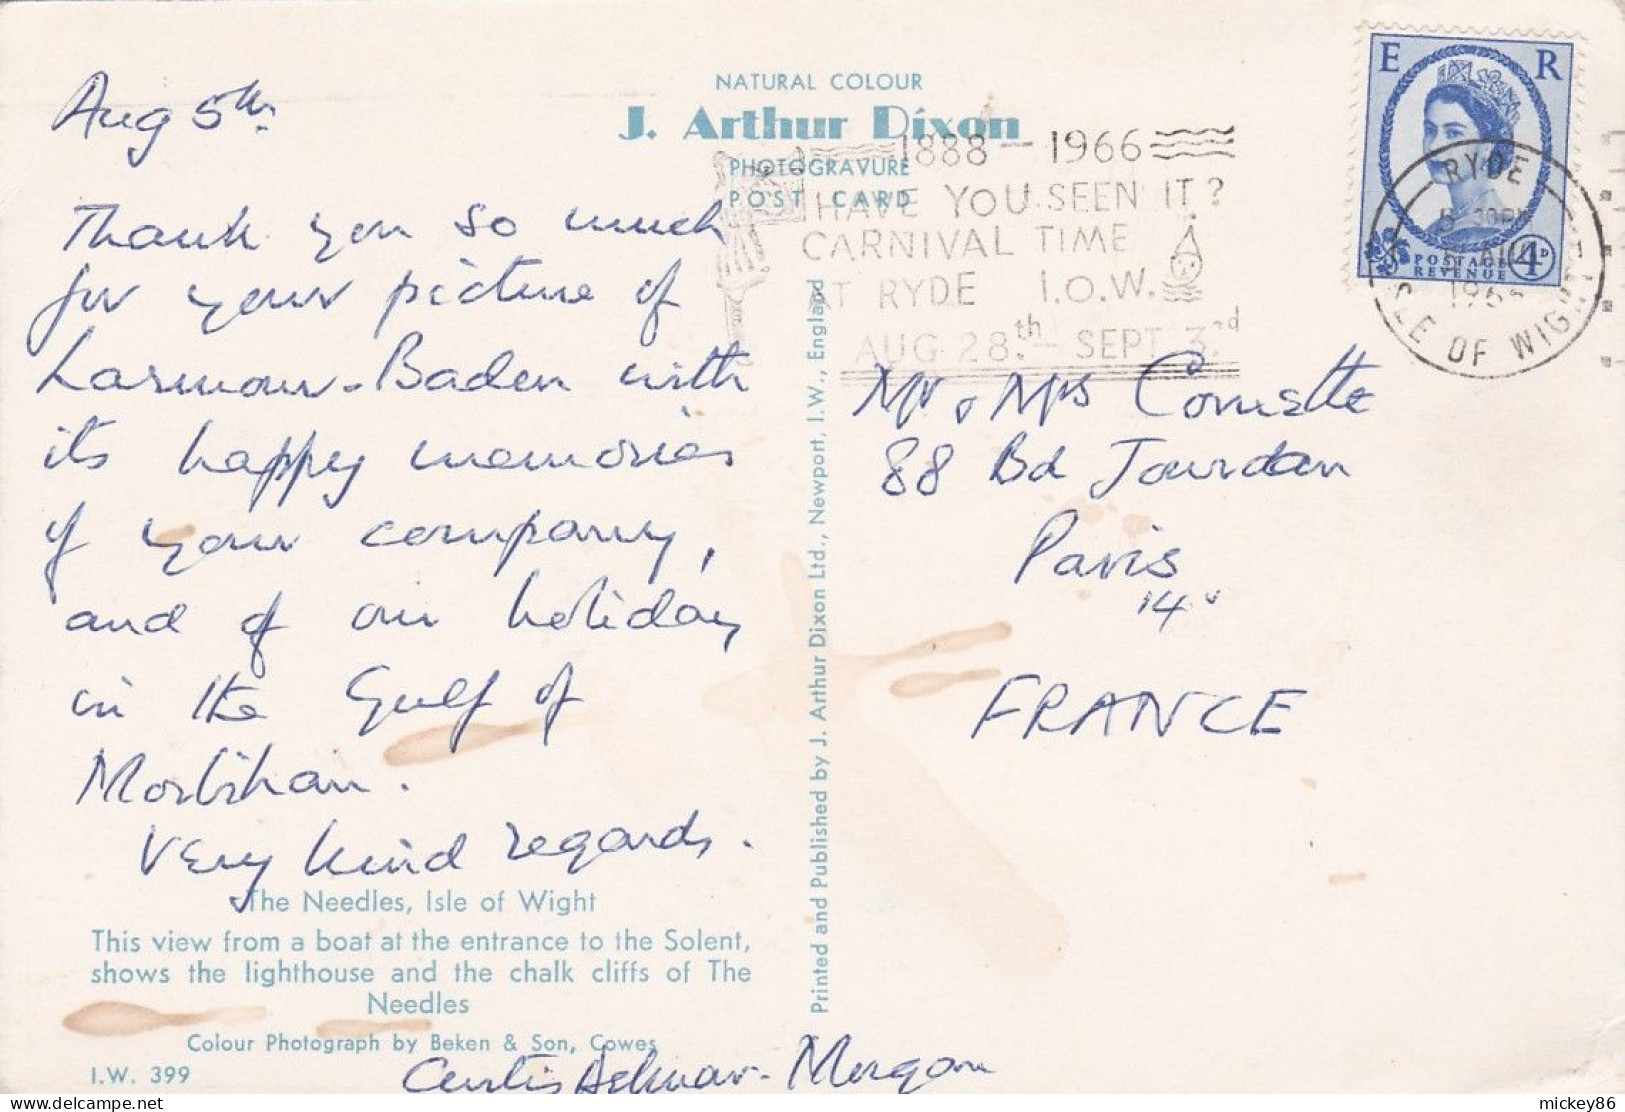 Aug 5th.
Thank you so much
for your picture of
Larmour-Baden with
its happy memories
of your company,
and of our holiday
in the Gulf of
Morbihan.
Very kind regards.
The Needles, Isle of Wight
This view from a boat at the entrance to the Solent,
shows the lighthouse and the chalk cliffs of The
Needles
Colour Photograph by Beken & Son, Cowes
I.W. 399
Curtis Morgan
NATURAL COLOUR
J. Arthur Dixon
PHOTOGRAVURE
POST CARD
Printed and Published by J. Arthur Dixon Ltd., Newport, I.W., England
1888 - 1966
HAVE YOU SEEN IT?
CARNIVAL TIME
AT RYDE I.O.W.
AUG 28.th - SEPT 3.rd
E R
POSTAGE
REVENUE 4D
RYDE
AUG
ISLE OF WIGHT
Mr & Mrs
88 Bd Jourdan
Paris
14
FRANCE
mickey86